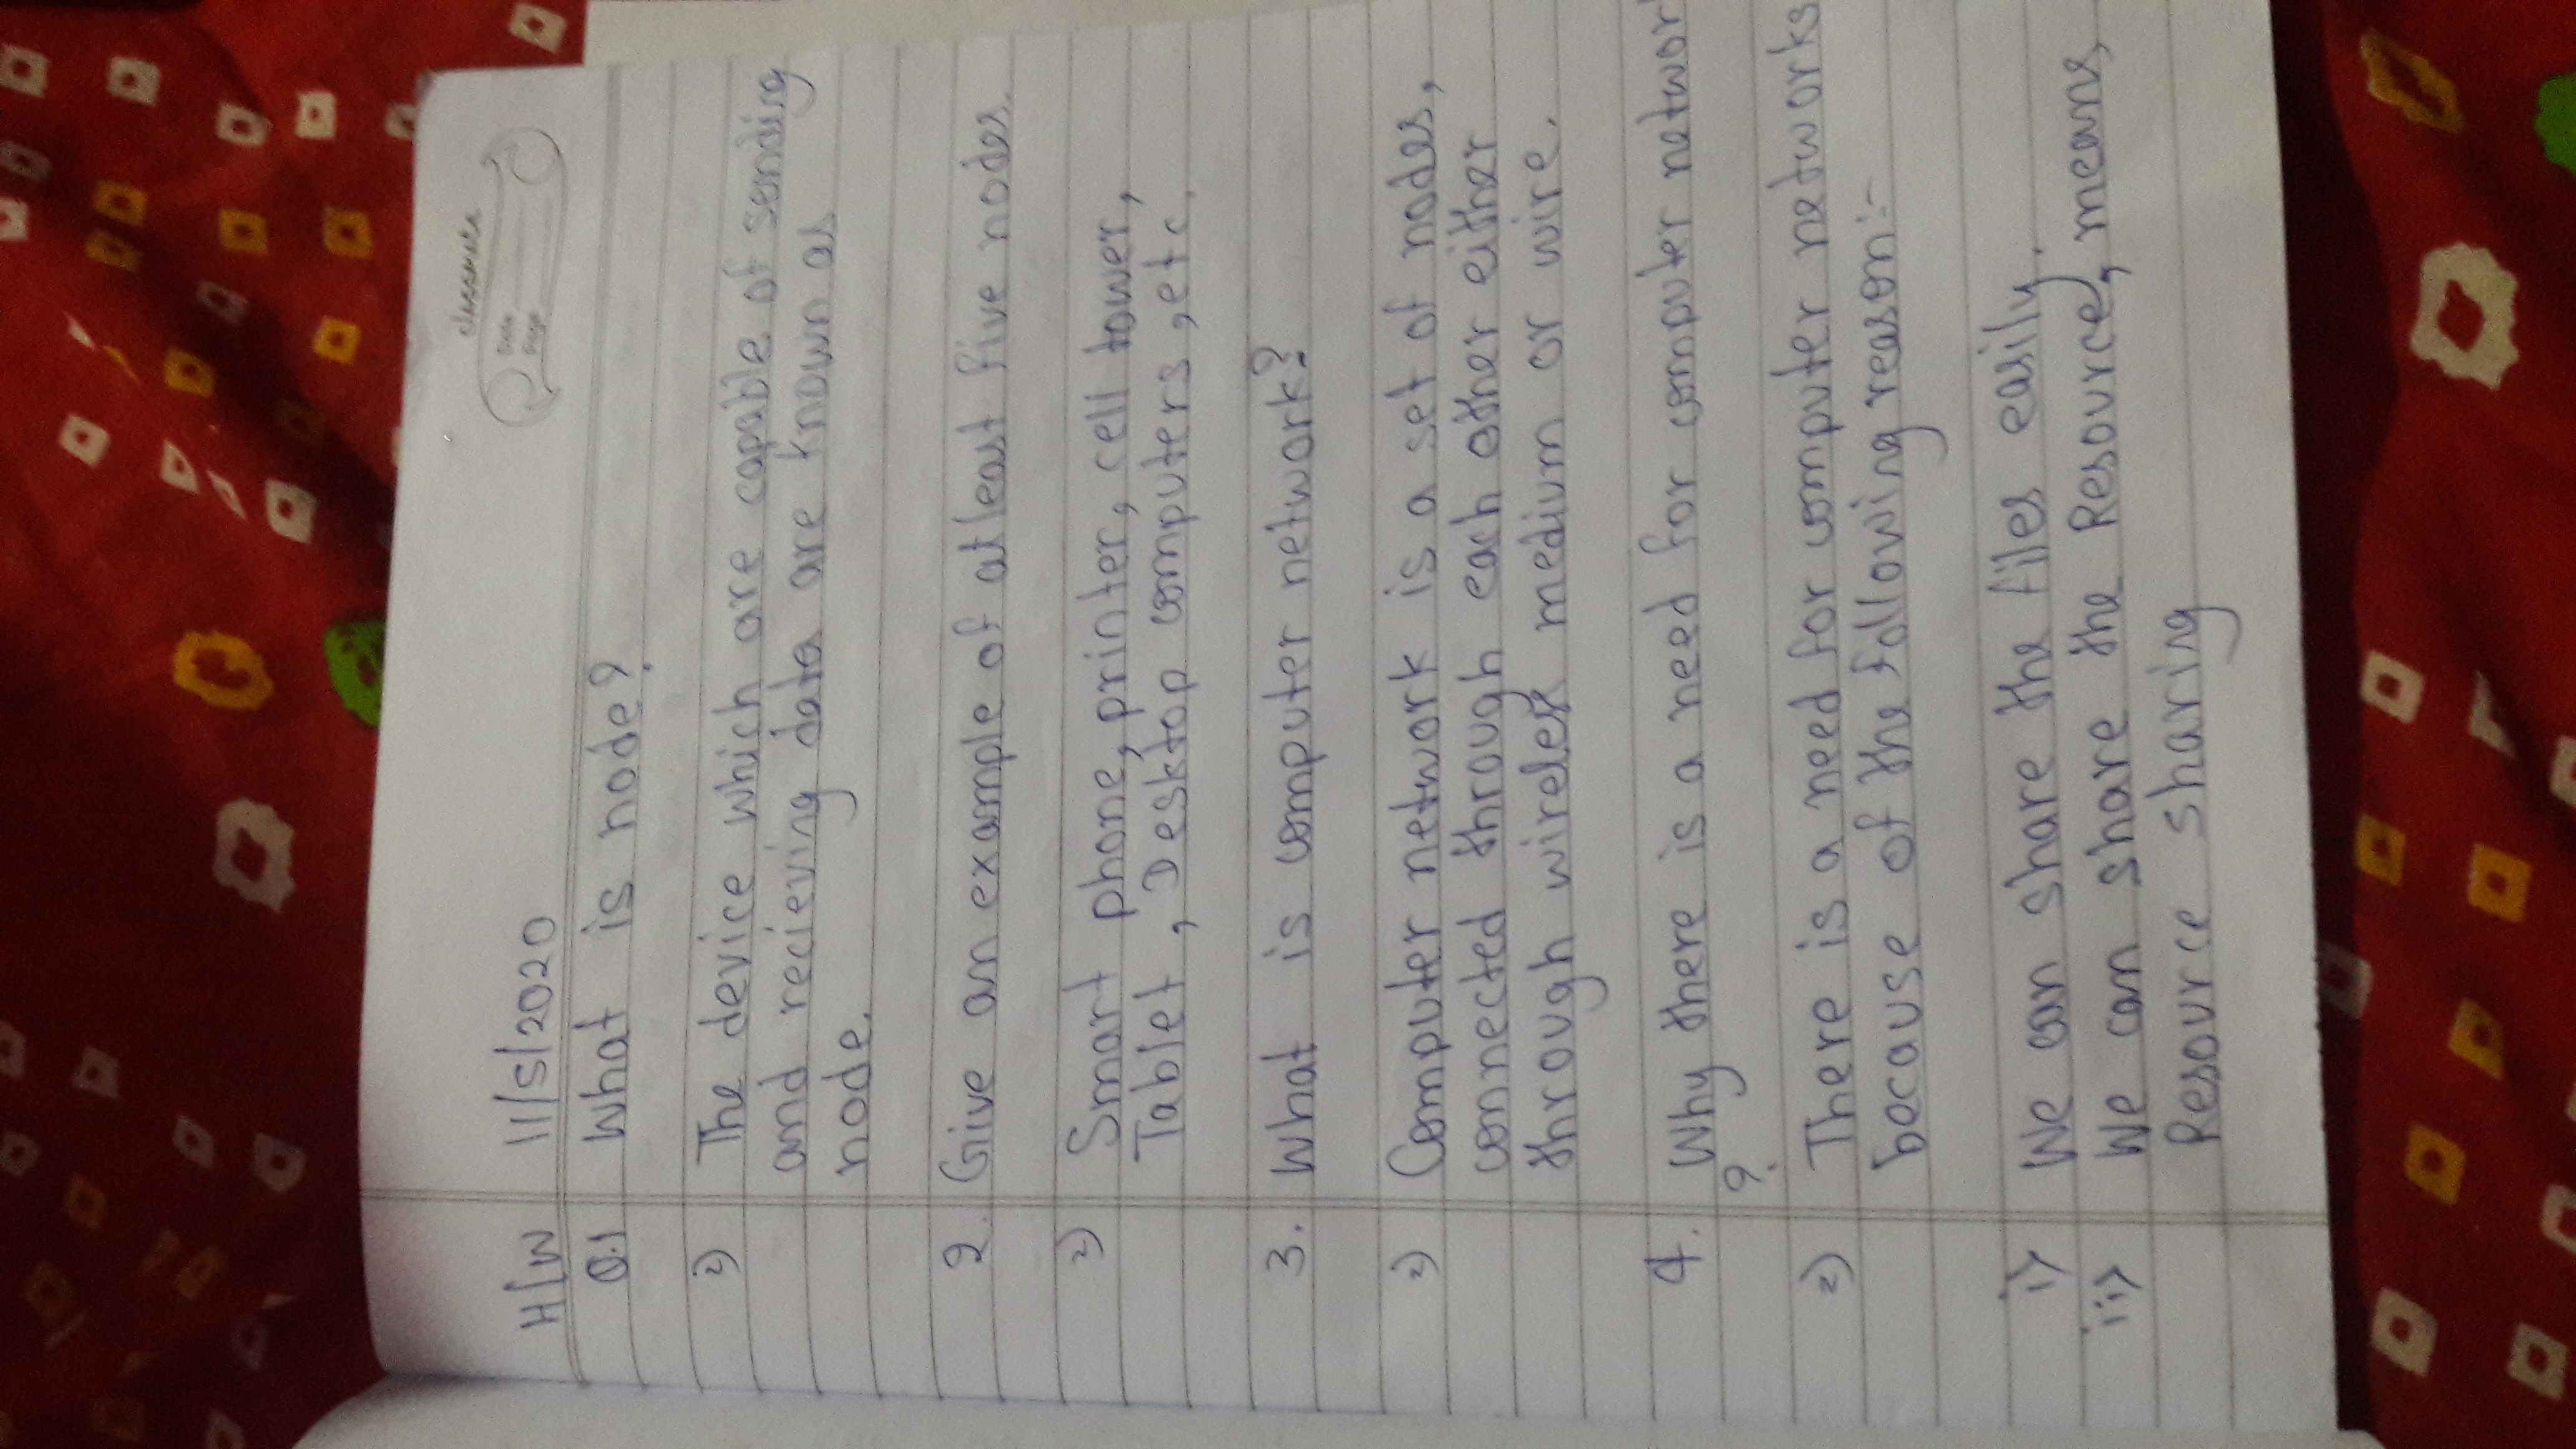 classmate
Date
Page
H/W 11/5/2020
Q.1 What is node?
2) The device which are capable of sending
and recieving data are known as
node.
2. Give an example of atleast five nodes.
2) Smart phone, printer, cell tower,
Tablet, Desktop computers, etc.
3. What is computer network?
2) Computer network is a set of nodes,
connected through each other either
through wireless medium or wire.
4. Why there is a need for computer networ
?
2) There is a need for computer networks
because of the following reason:-
i> We can share the files easily.
ii> We can share the Resource, means,
Resource sharing